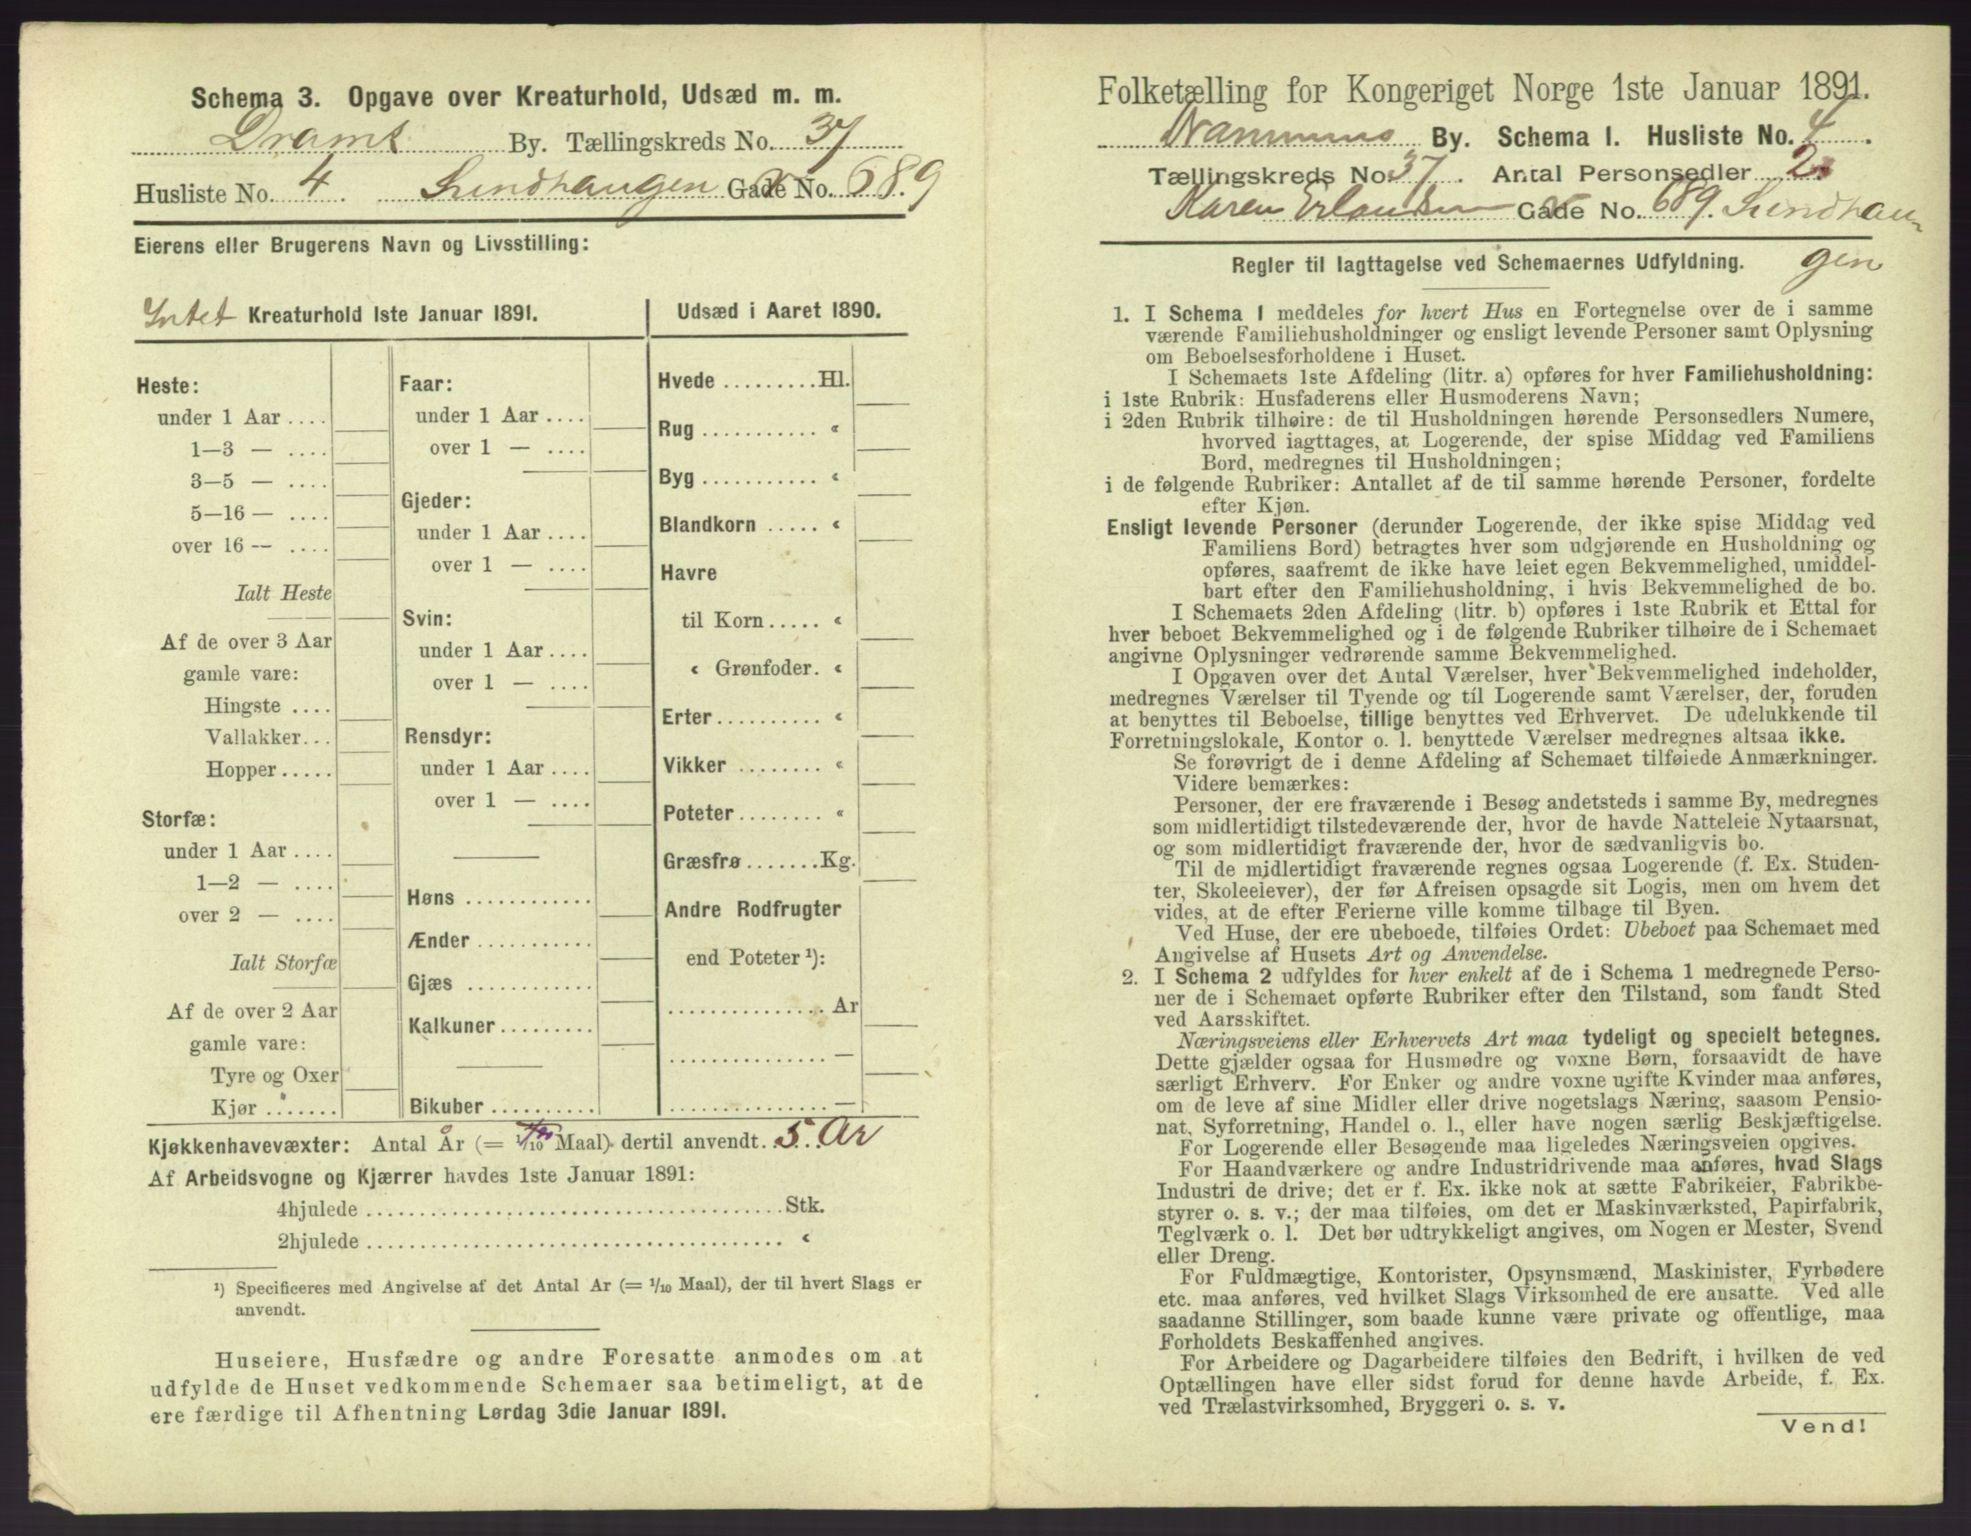 Schema 3. Opgave over Kreaturhold, Udsæd m. m.
Dramt By. Tællingskreds No. 37
Husliste No. 4. Sundhaugen Gade No. 689
Eierens eller Brugerens Navn og Livsstilling:
Intet Kreaturhold 1ste Januar 1891.
Heste:
under 1 Aar ....
1—3 — ....
3—5 — ....
5—16 — ....
over 16 — ....
Ialt Heste
Af de over 3 Aar
gamle vare:
Hingste ....
Vallakker...
Hopper.....
Storfæ:
under 1 Aar ....
1—2 — ....
over 2 — ....
Ialt Storfæ
Af de over 2 Aar
gamle vare:
Tyre og Oxer
Kjør .......
Faar:
under 1 Aar ....
over 1 — ....
Gjeder:
under 1 Aar ....
over 1 — ....
Svin:
under 1 Aar ....
over 1 — ....
Rensdyr:
under 1 Aar ....
over 1 — ....
Høns ............
Ænder ...........
Gjæs ............
Kalkuner .........
Bikuber ..........
Udsæd i Aaret 1890.
Hvede .........Hl.
Rug ........... «
Byg ........... «
Blandkorn ..... «
Havre
til Korn ..... «
« Grønfoder. «
Erter .......... «
Vikker ........ «
Poteter ........ «
Græsfrø .......Kg.
Andre Rodfrugter
end Poteter ¹):
............... Ar
............... —
............... —
Kjøkkenhavevæxter: Antal År (= 1/10 Maal) dertil anvendt. 5 Ar
Af Arbeidsvogne og Kjærrer havdes 1ste Januar 1891:
4hjulede ........................................ Stk.
2hjulede ........................................ «
¹) Specificeres med Angivelse af det Antal Ar (= 1/10 Maal), der til hvert Slags er
anvendt.
Huseiere, Husfædre og andre Foresatte anmodes om at
udfylde de Huset vedkommende Schemaer saa betimeligt, at de
ere færdige til Afhentning Lørdag 3die Januar 1891.
Folketælling for Kongeriget Norge 1ste Januar 1891.
Drammens By. Schema I. Husliste No. 4.
Tællingskreds No. 37. Antal Personsedler 2.
Karen Erlandsen Gade No. 689. Sundhau-
gen
Regler til Iagttagelse ved Schemaernes Udfyldning.
1. I Schema 1 meddeles for hvert Hus en Fortegnelse over de i samme
værende Familiehusholdninger og ensligt levende Personer samt Oplysning
om Beboelsesforholdene i Huset.
I Schemaets 1ste Afdeling (litr. a) opføres for hver Familiehusholdning:
i 1ste Rubrik: Husfaderens eller Husmoderens Navn;
i 2den Rubrik tilhøire: de til Husholdningen hørende Personsedlers Numere,
hvorved iagttages, at Logerende, der spise Middag ved Familiens
Bord, medregnes til Husholdningen;
i de følgende Rubriker: Antallet af de til samme hørende Personer, fordelte
efter Kjøn.
Ensligt levende Personer (derunder Logerende, der ikke spise Middag ved
Familiens Bord) betragtes hver som udgjørende en Husholdning og
opføres, saafremt de ikke have leiet egen Bekvemmelighed, umiddel-
bart efter den Familiehusholdning, i hvis Bekvemmelighed de bo.
I Schemaets 2den Afdeling (litr. b) opføres i 1ste Rubrik et Ettal for
hver beboet Bekvemmelighed og i de følgende Rubriker tilhøire de i Schemaet
angivne Oplysninger vedrørende samme Bekvemmelighed.
I Opgaven over det Antal Værelser, hver Bekvemmelighed indeholder,
medregnes Værelser til Tyende og til Logerende samt Værelser, der, foruden
at benyttes til Beboelse, tillige benyttes ved Erhvervet. De udelukkende til
Forretningslokale, Kontor o. l. benyttede Værelser medregnes altsaa ikke.
Se forøvrigt de i denne Afdeling af Schemaet tilføiede Anmærkninger.
Videre bemærkes:
Personer, der ere fraværende i Besøg andetsteds i samme By, medregnes
som midlertidigt tilstedeværende der, hvor de havde Natteleie Nytaarsnat,
og som midlertidigt fraværende der, hvor de sædvanligvis bo.
Til de midlertidigt fraværende regnes ogsaa Logerende (f. Ex. Studen-
ter, Skoleelever), der før Afreisen opsagde sit Logis, men om hvem det
vides, at de efter Ferierne ville komme tilbage til Byen.
Ved Huse, der ere ubeboede, tilføies Ordet: Ubeboet paa Schemaet med
Angivelse af Husets Art og Anvendelse.
2. I Schema 2 udfyldes for hver enkelt af de i Schema 1 medregnede Perso-
ner de i Schemaet opførte Rubriker efter den Tilstand, som fandt Sted
ved Aarsskiftet.
Næringsveiens eller Erhvervets Art maa tydeligt og specielt betegnes.
Dette gjælder ogsaa for Husmødre og voxne Børn, forsaavidt de have
særligt Erhverv. For Enker og andre voxne ugifte Kvinder maa anføres,
om de leve af sine Midler eller drive nogetslags Næring, saasom Pensio-
nat, Syforretning, Handel o. l., eller have nogen særlig Beskjæftigelse.
For Logerende eller Besøgende maa ligeledes Næringsveien opgives.
For Haandværkere og andre Industridrivende maa anføres, hvad Slags
Industri de drive; det er f. Ex. ikke nok at sætte Fabrikeier, Fabrikbe-
styrer o. s. v.; der maa tilføies, om det er Maskinværksted, Papirfabrik,
Teglværk o. l. Det bør udtrykkeligt angives, om Nogen er Mester, Svend
eller Dreng.
For Fuldmægtige, Kontorister, Opsynsmænd, Maskinister, Fyrbødere
etc. maa anføres, ved hvilket Slags Virksomhed de ere ansatte. Ved alle
saadanne Stillinger, som baade kunne være private og offentlige, maa
Forholdets Beskaffenhed angives.
For Arbeidere og Dagarbeidere tilføies den Bedrift, i hvilken de ved
Optællingen have eller sidst forud for denne havde Arbeide, f. Ex.
ved Trælastvirksomhed, Bryggeri o. s. v.
Vend!